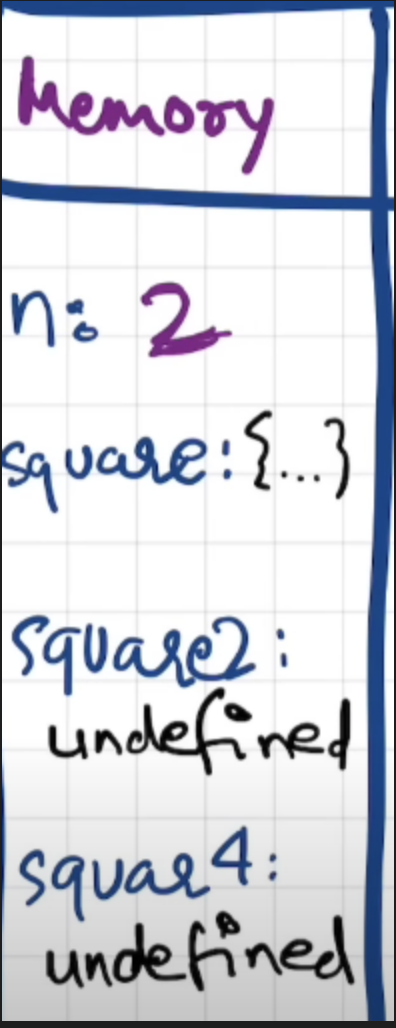 Memory
n: 2
square: {...}
square2:
undefined
squar4:
undefined